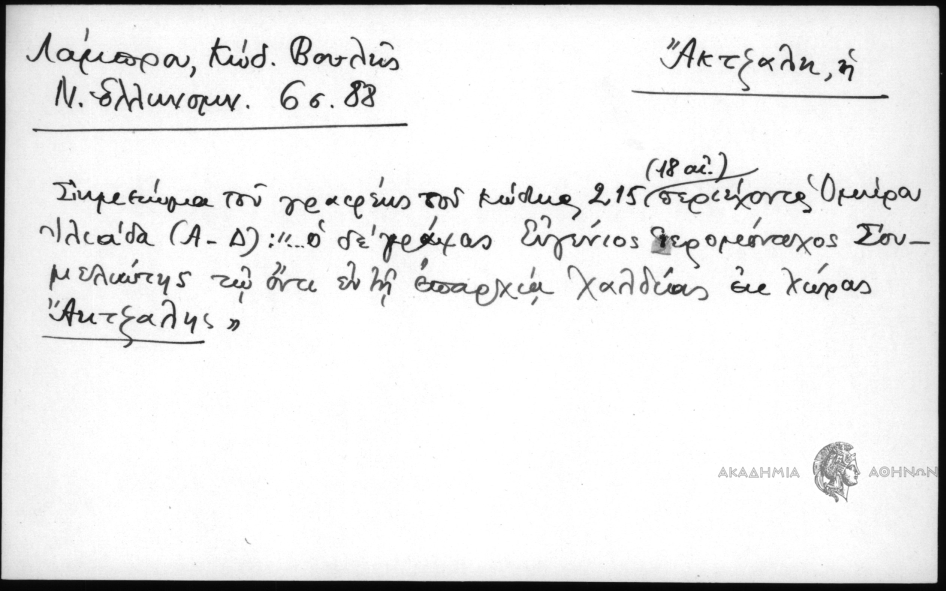 Λάμπρου, Κώδ. Βουλῆς
Ν. Ἑλληνομν. 6 σ. 88
Ἀκτζαλη, ἡ
(18 αἰ.)
Σημείωμα τοῦ γραφέως τοῦ κώδικος 215 περιέχοντος Ὁμήρου
Ἰλιάδα (Α-Δ): «... ὁ δὲ γράψας Εὐγένιος ἱερομόναχος Σου-
μελιώτης τῷ ὄντι ἐν τῇ ἐπαρχίᾳ Χαλδίας ἐκ χώρας
Ἄκτζαλης»
ΑΚΑΔΗΜΙΑ ΑΘΗΝΩΝ